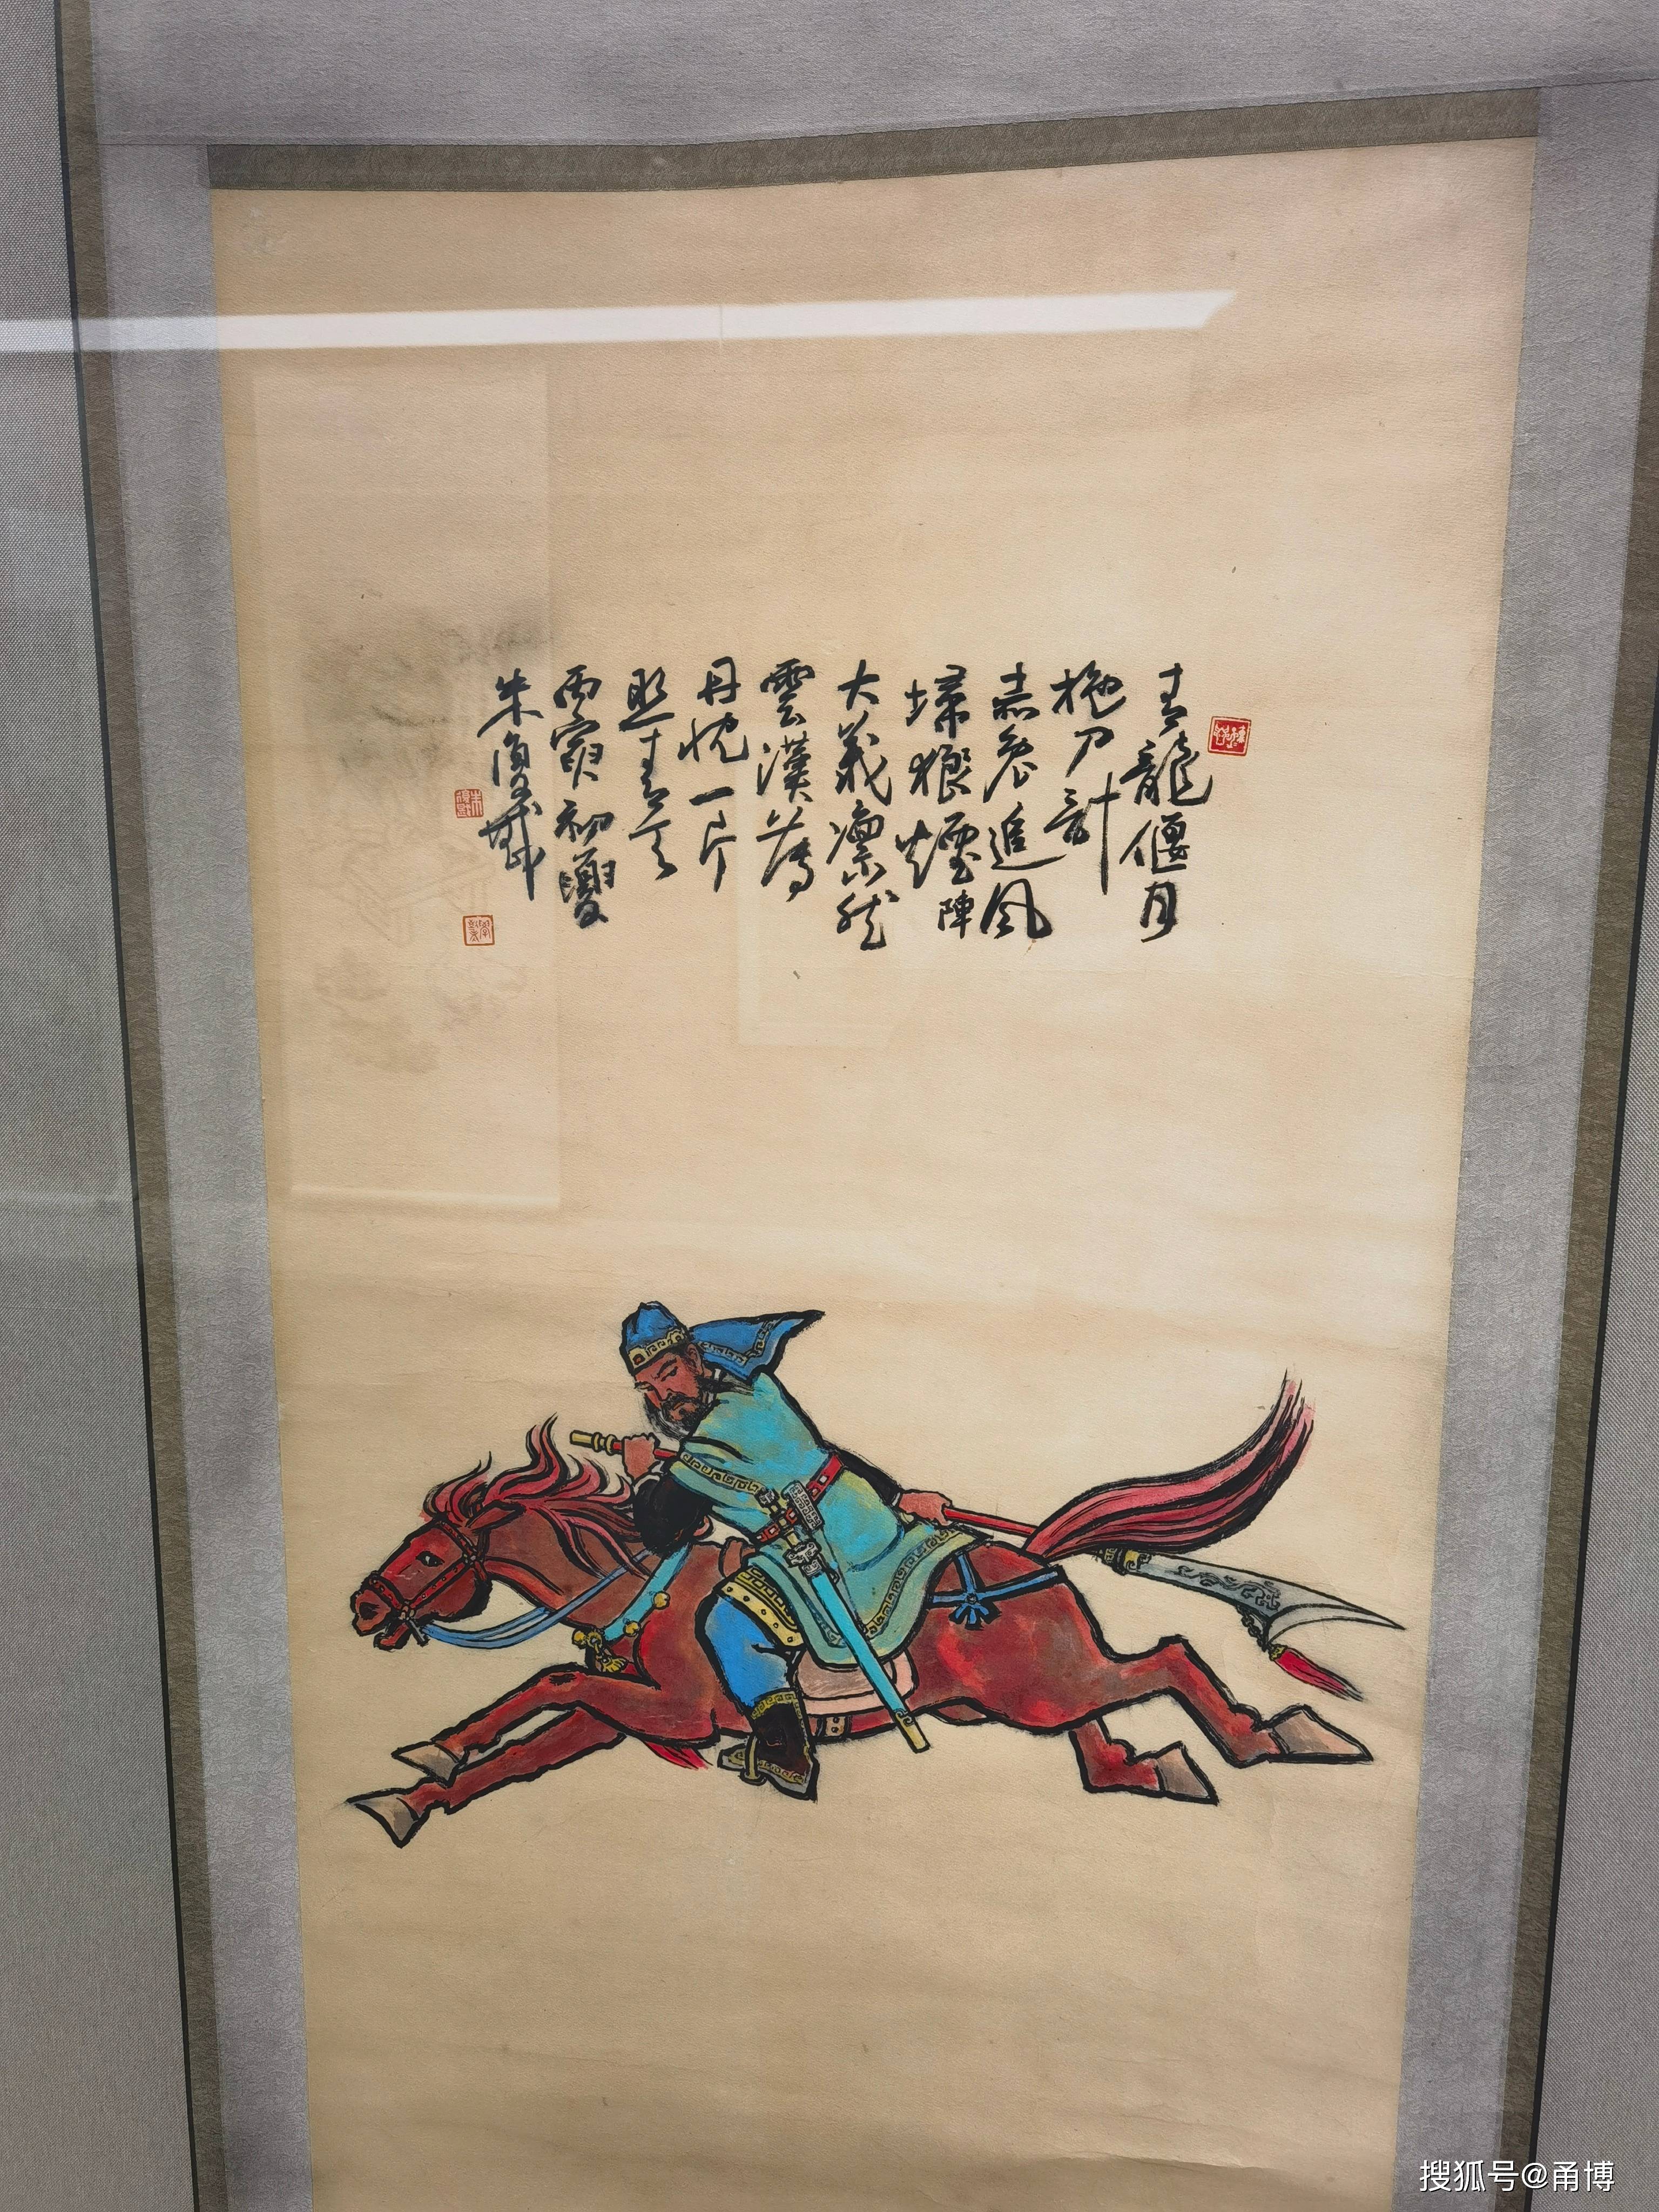 青龍偃月
拖刀計
赤兔追風
掃狼煙陣
大義凜然
雲漢薄
丹忱一片
照青天
丙寅初夏
朱復戡
搜狐号@甬博